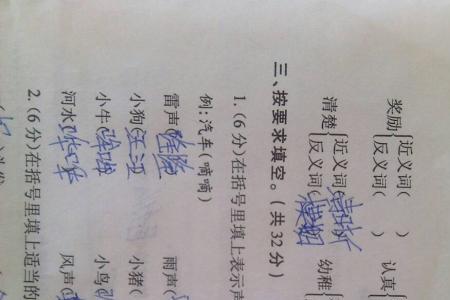 奖励{近义词( )
反义词( )
认真{
清楚{近义词(清晰
反义词(模糊
幼稚{
三、按要求填空。(共32分)
1.(6分)在括号里填上表示声
例:汽车(嘀嘀)
雷声(隆隆 雨声(
小狗(汪汪 小猪(
小牛( 小鸟(
河水(哗哗 风声(
2.(6分)在括号里填上适当的